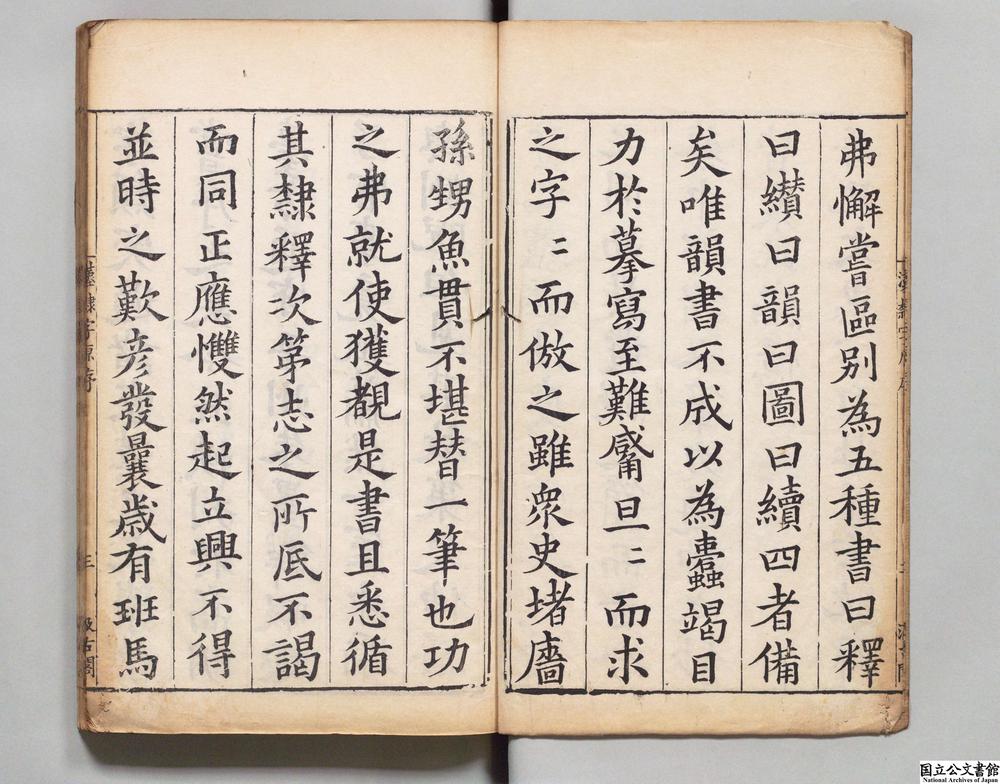 弗懈嘗區别為五種書曰釋
曰纘曰韻曰圖曰續四者備
矣唯韻書不成以為蠹竭目
力於摹寫至難感旦〻而求
之字〻而倣之雖衆史堵牆
孫甥魚貫不堪替一筆也功
之弗就使獲覩是書且悉循
其隸釋次第志之所底不謁
而同正應戄然起立興不得
並時之歎彦發曩歲有班馬
漢隸字原序
三
汲古閣
国立公文書館
National Archives of Japan